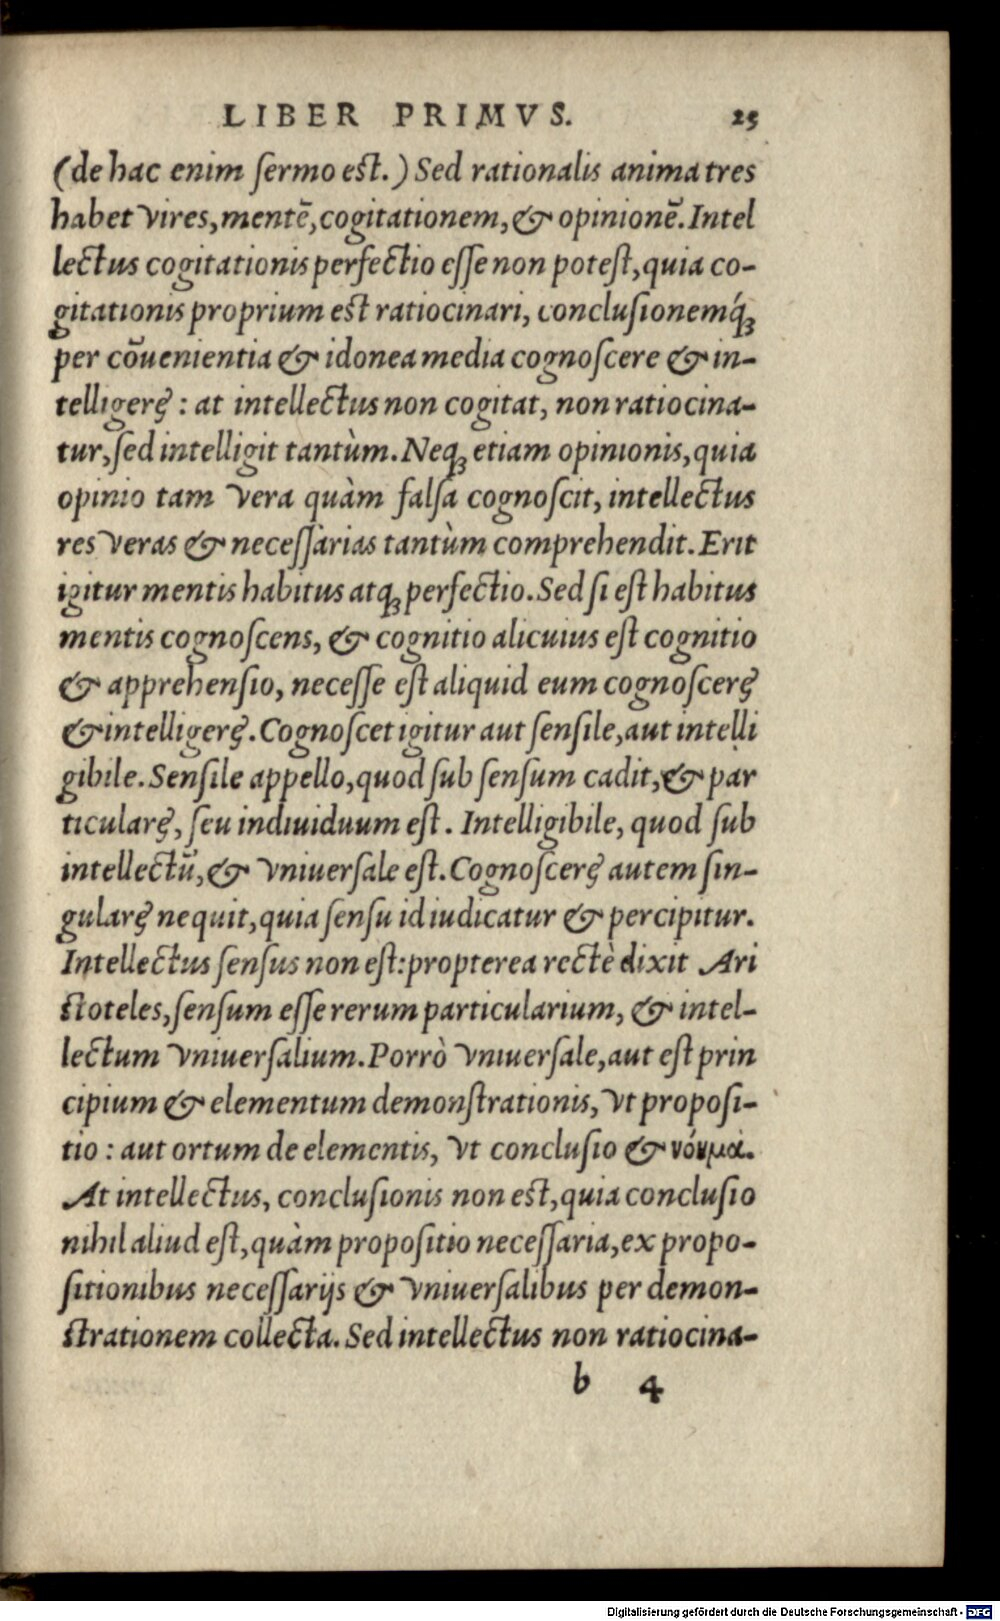 LIBER PRIMVS. 25
(de hac enim ſermo est.) Sed rationalis anima tres
habet vires, mentē, cogitationem, & opinionē. Intel
lectus cogitationis perfectio eſſe non poteſt, quia co-
gitationis proprium est ratiocinari, conclusionemq́;
per cōuenientia & idonea media cognoſcere & in-
telligerȩ: at intellectus non cogitat, non ratiocina-
tur, ſed intelligit tantùm. Neq; etiam opinionis, quia
opinio tam vera quàm falſa cognoſcit, intellectus
res veras & neceſſarias tantùm comprehendit. Erit
igitur mentis habitus atq; perfectio. Sed ſi eſt habitus
mentis cognoſcens, & cognitio alicuius eſt cognitio
& apprehenſio, neceſſe eſt aliquid eum cognoſcerȩ
& intelligerȩ. Cognoſcet igitur aut ſenſile, aut intelli
gibile. Senſile appello, quod ſub ſenſum cadit, & par
ticularȩ, ſeu indiuiduum eſt. Intelligibile, quod ſub
intellectū, & vniuerſale eſt. Cognoſcerȩ autem ſin-
gularȩ nequit, quia ſenſu id iudicatur & percipitur.
Intellectus ſenſus non eſt: propterea rectè dixit Ari
stoteles, ſenſum eſſe rerum particularium, & intel-
lectum vniuerſalium. Porrò vniuerſale, aut eſt prin
cipium & elementum demonſtrationis, vt propoſi-
tio: aut ortum de elementis, vt concluſio & νόημα.
At intellectus, concluſionis non est, quia concluſio
nihil aliud eſt, quàm propoſitio neceſſaria, ex propo-
ſitionibus neceſſarijs & vniuerſalibus per demon-
strationem collecta. Sed intellectus non ratiocina-
b 4
Digitalisierung gefördert durch die Deutsche Forschungsgemeinschaft - DFG